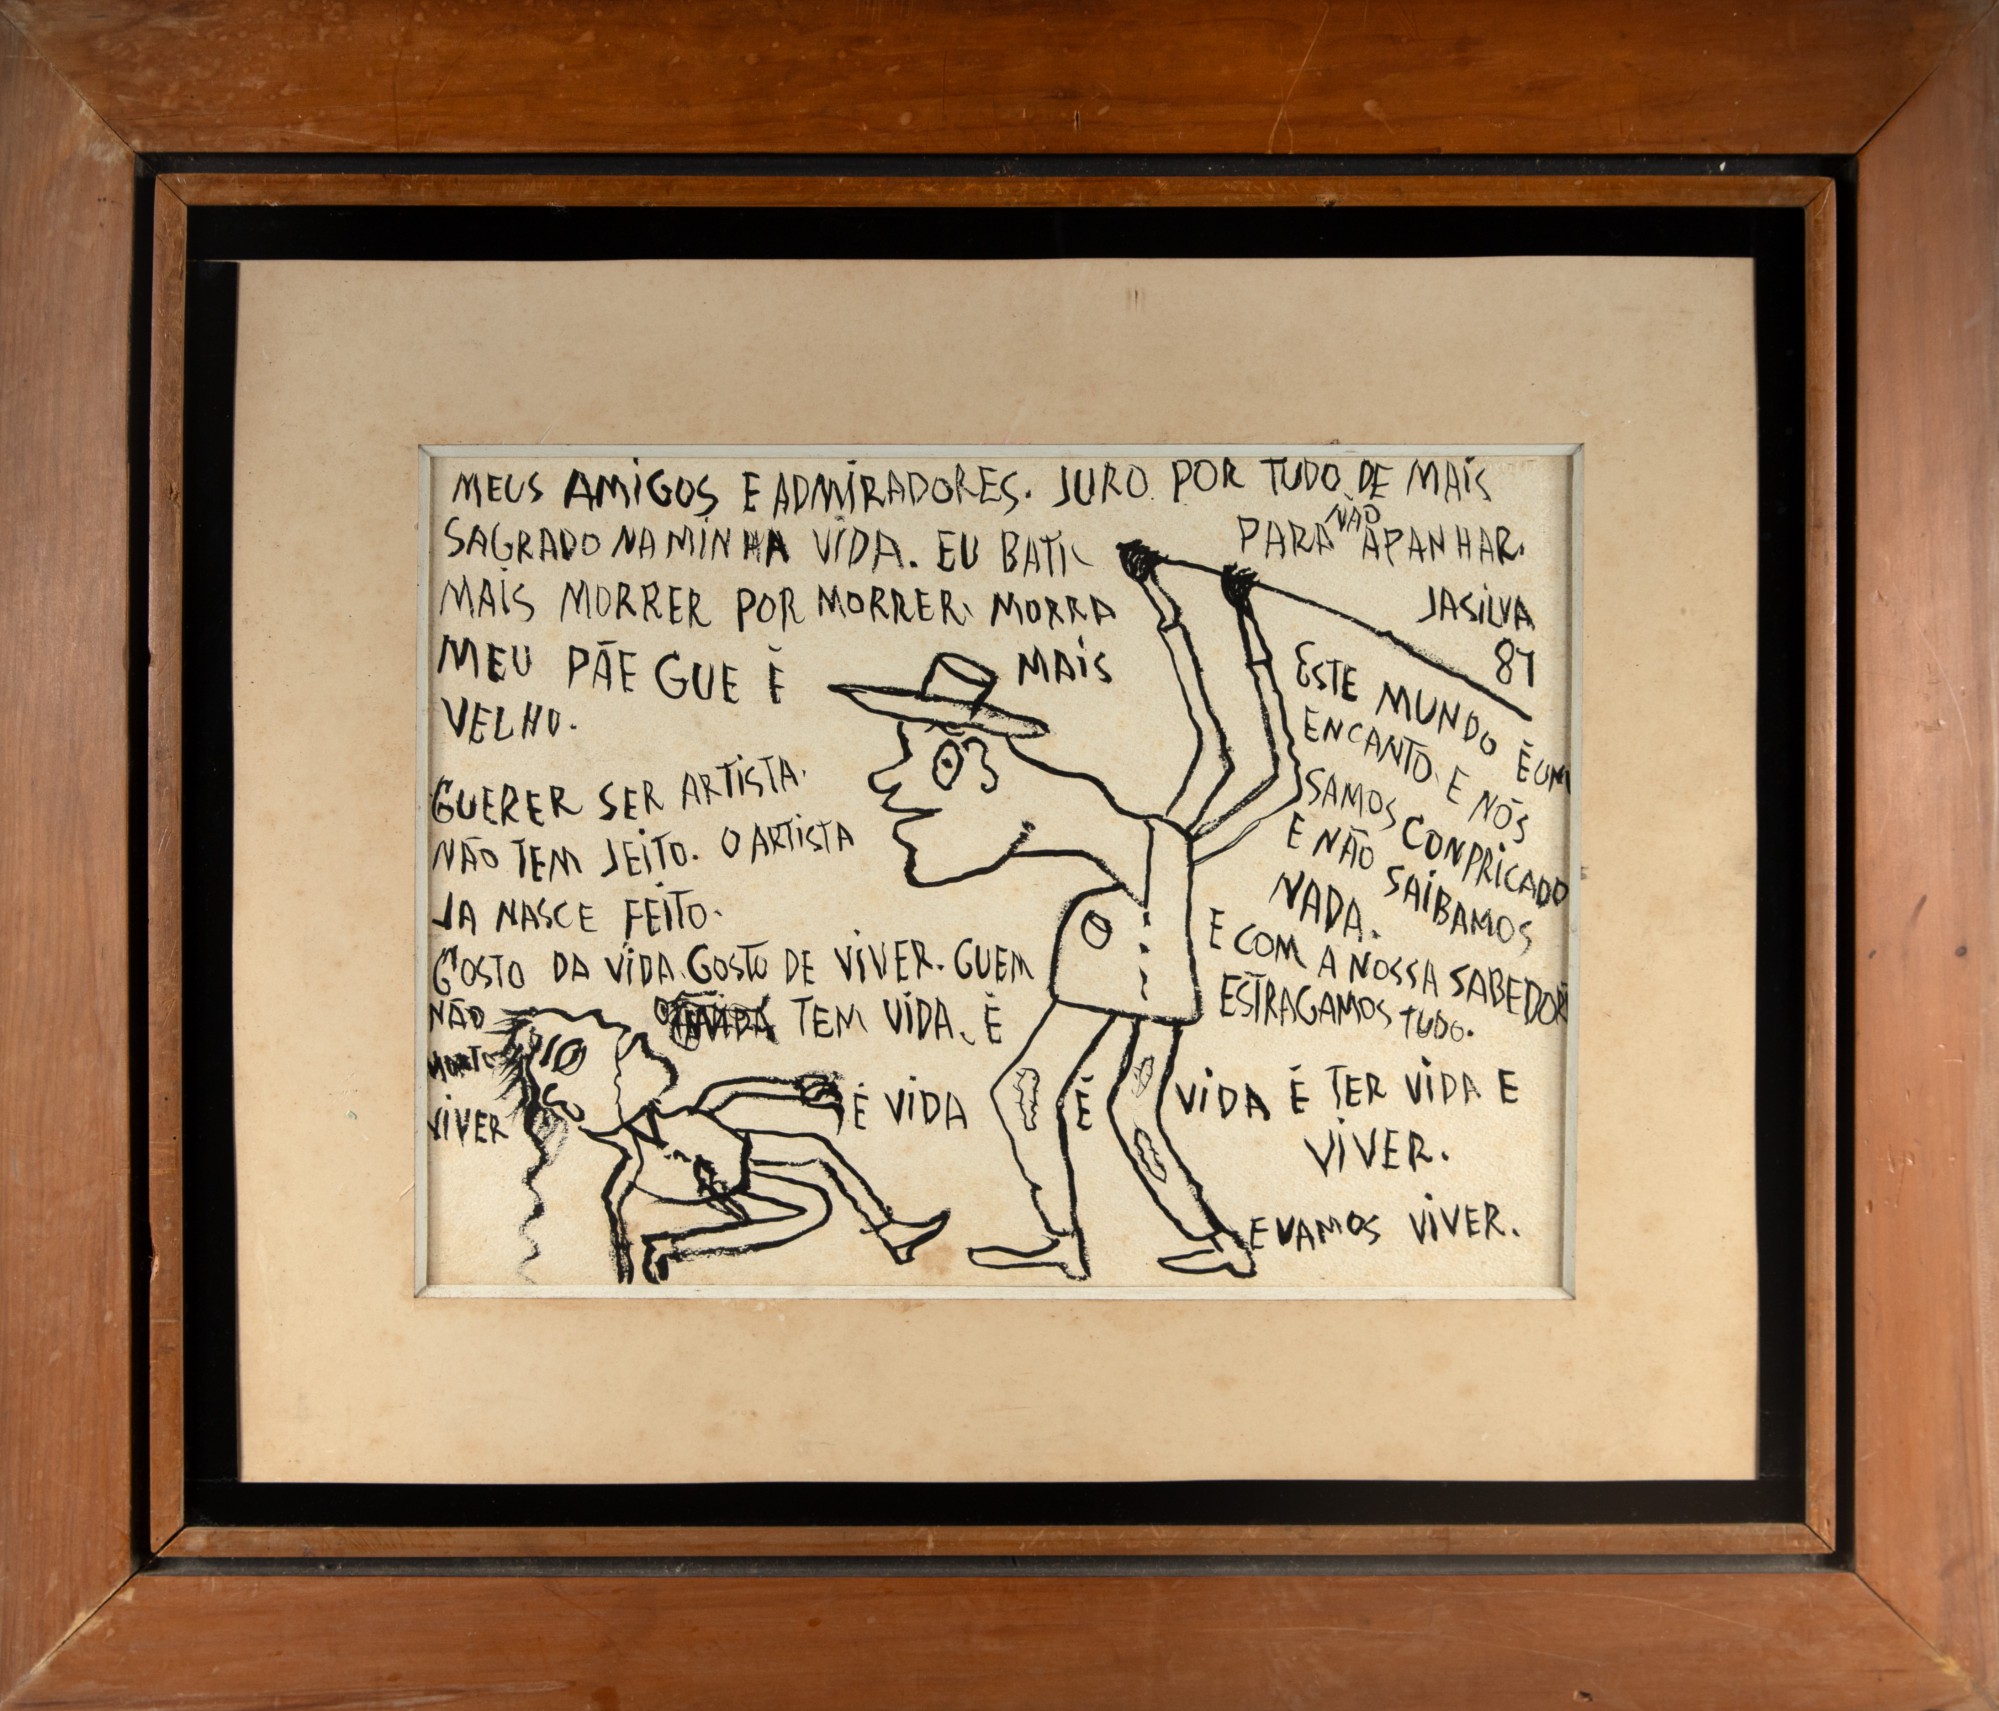 MEUS AMIGOS E ADMIRADORES. JURO. POR TUDO DE MAIS
SAGRADO NA MINHA VIDA. EU BATI PARA NÃO APANHAR.
MAIS MORRER POR MORRER. MORRA
MEU PÃE GUE É MAIS
VELHO.
JASILVA
81
GUERER SER ARTISTA.
NÃO TEM JEITO. O ARTISTA
JA NASCE FEITO.
GOSTO DA VIDA. GOSTO DE VIVER. GUEM
NÃO TEM VIDA. É
MORTO
VIVER É VIDA É VIDA É TER VIDA E
VIVER.
E VAMOS VIVER.
ESTE MUNDO É UM
ENCANTO. E NÓS
SAMOS CONPRICADO
E NÃO SAIBAMOS
NADA.
E COM A NOSSA SABEDORI
ESTRAGAMOS TUDO.